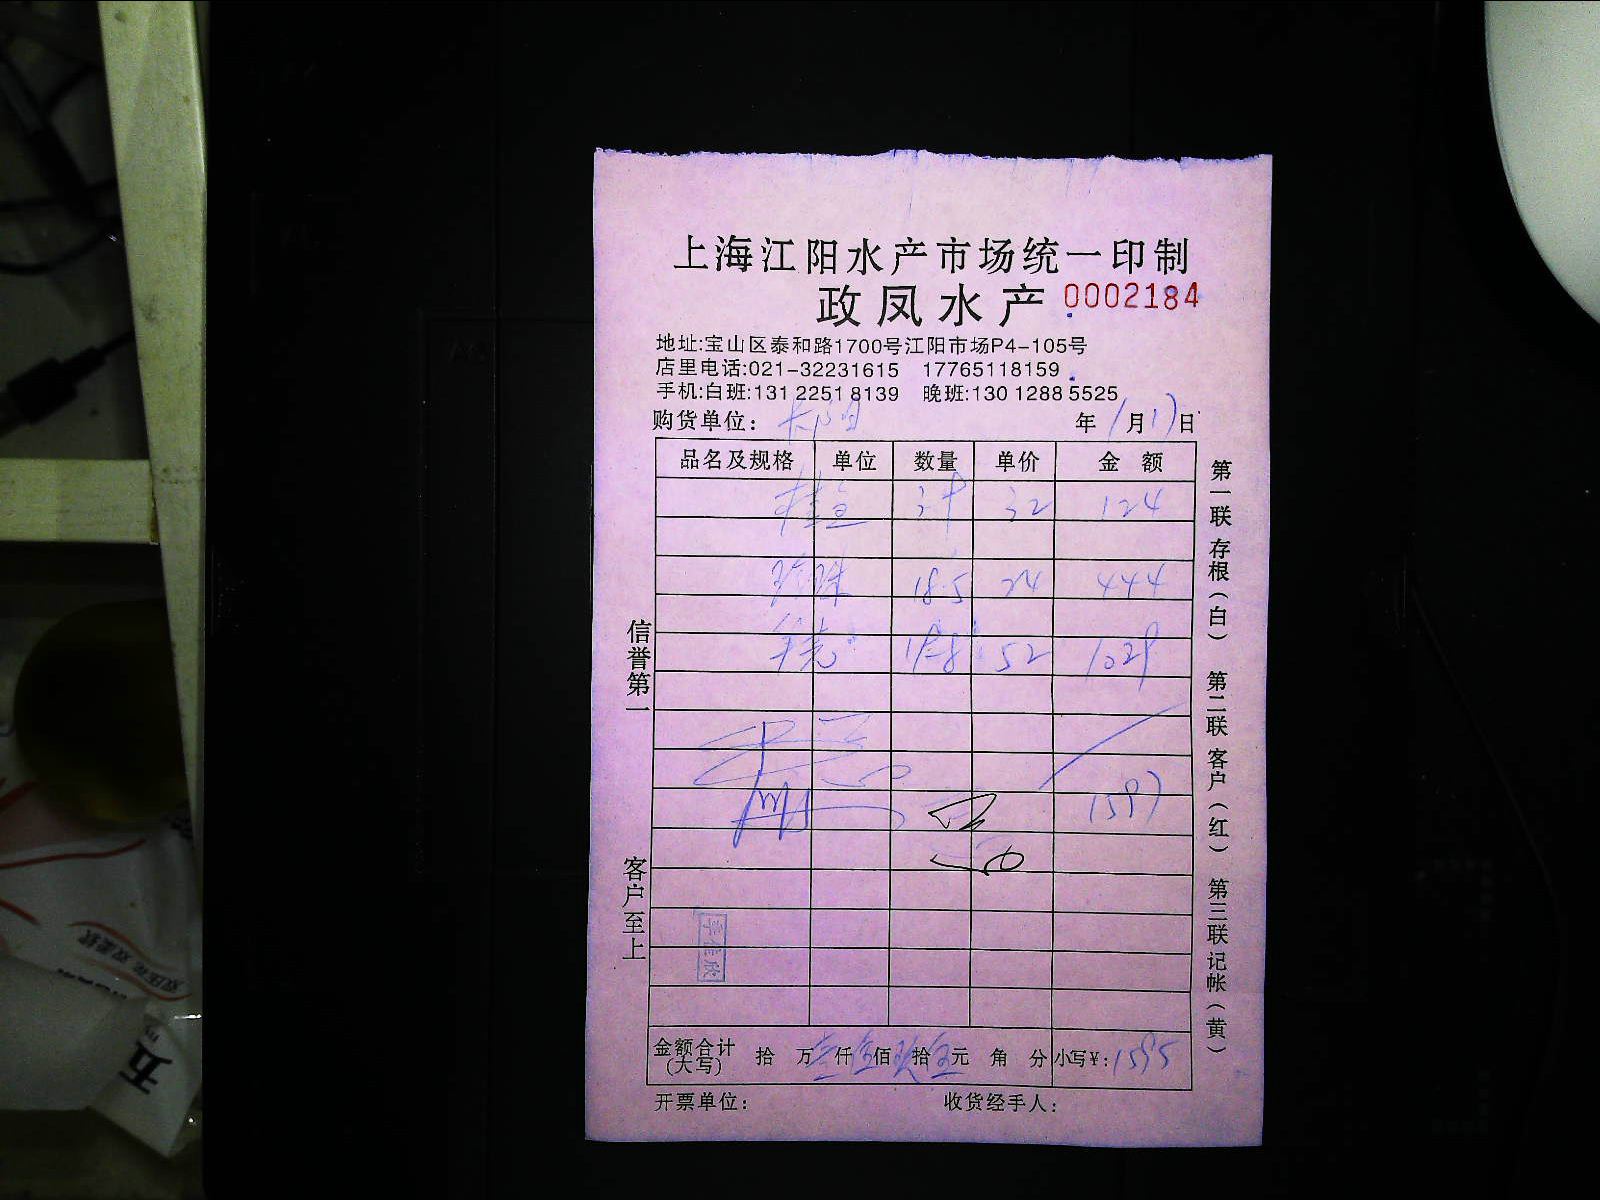 上海江阳水产市场统一印制
政凤水产 0002184
地址:宝山区泰和路1700号江阳市场P4-105号
店里电话:021-32231615 17765118159
手机:白班:131 2251 8139 晚班:130 1288 5525
购货单位: 年 1月17日
品名及规格 单位 数量 单价 金 额
32 124
18.5 24 444
52 1029
1597
金额合计(大写) 拾 万壹仟伍佰玖拾伍元 角 分 小写¥:1595
开票单位: 收货经手人:
信誉第一
客户至上
第一联 存根(白) 第二联 客户(红) 第三联 记帐(黄)
五